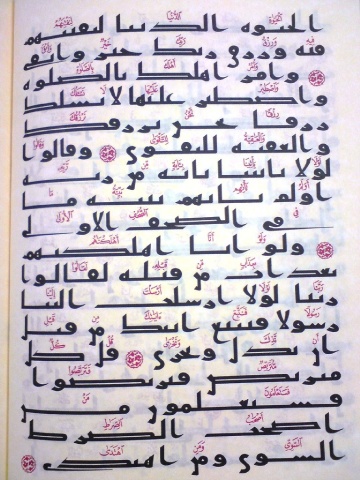 الحيوة الدنيا لنفتنهم
فيه ورزق ربك خير وابقى
وامر اهلك بالصلوة
واصطبر عليها لا نسلك
رزقا نحن نرزقك
والعقبة للتقوى وقالوا
لولا ياتينا باية من ربه
اولم تاتهم بينة ما
في الصحف الاولى
ولو انا اهلكنهم
بعذاب من قبله لقالوا
ربنا لولا ارسلت الينا
رسولا فنتبع ايتك من قبل
ان نذل ونخزى قل كل
متربص فتربصوا
فستعلمون من
اصحب الصرط
السوي ومن اهتدى